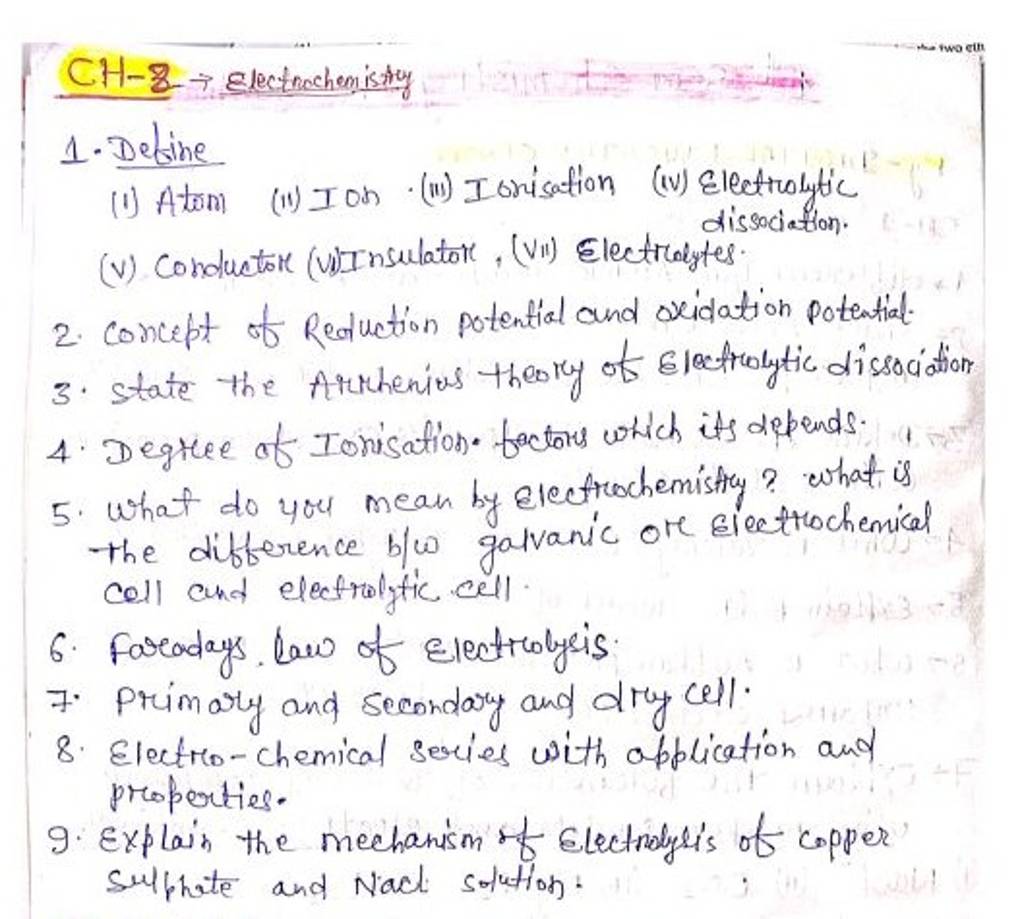 the two elh
CH-8 → Electrochemistry
1. Define
(i) Atom (ii) Ion (iii) Ionisation (iv) Electrolytic
dissociation.
(v) Conductor (vi) Insulator, (vii) Electrolytes.
2. Concept of Reduction potential and oxidation potential.
3. State the Arrhenius theory of Electrolytic dissociation
4. Degree of Ionisation. factors which its depends.
5. What do you mean by Electrochemistry? what is
the difference b/w galvanic or Electrochemical
cell and electrolytic cell.
6. Faradays law of Electrolysis.
7. Primary and secondary and dry cell.
8. Electro-chemical series with application and
properties.
9. Explain the mechanism of Electrolysis of copper
Sulphate and Nacl solution.